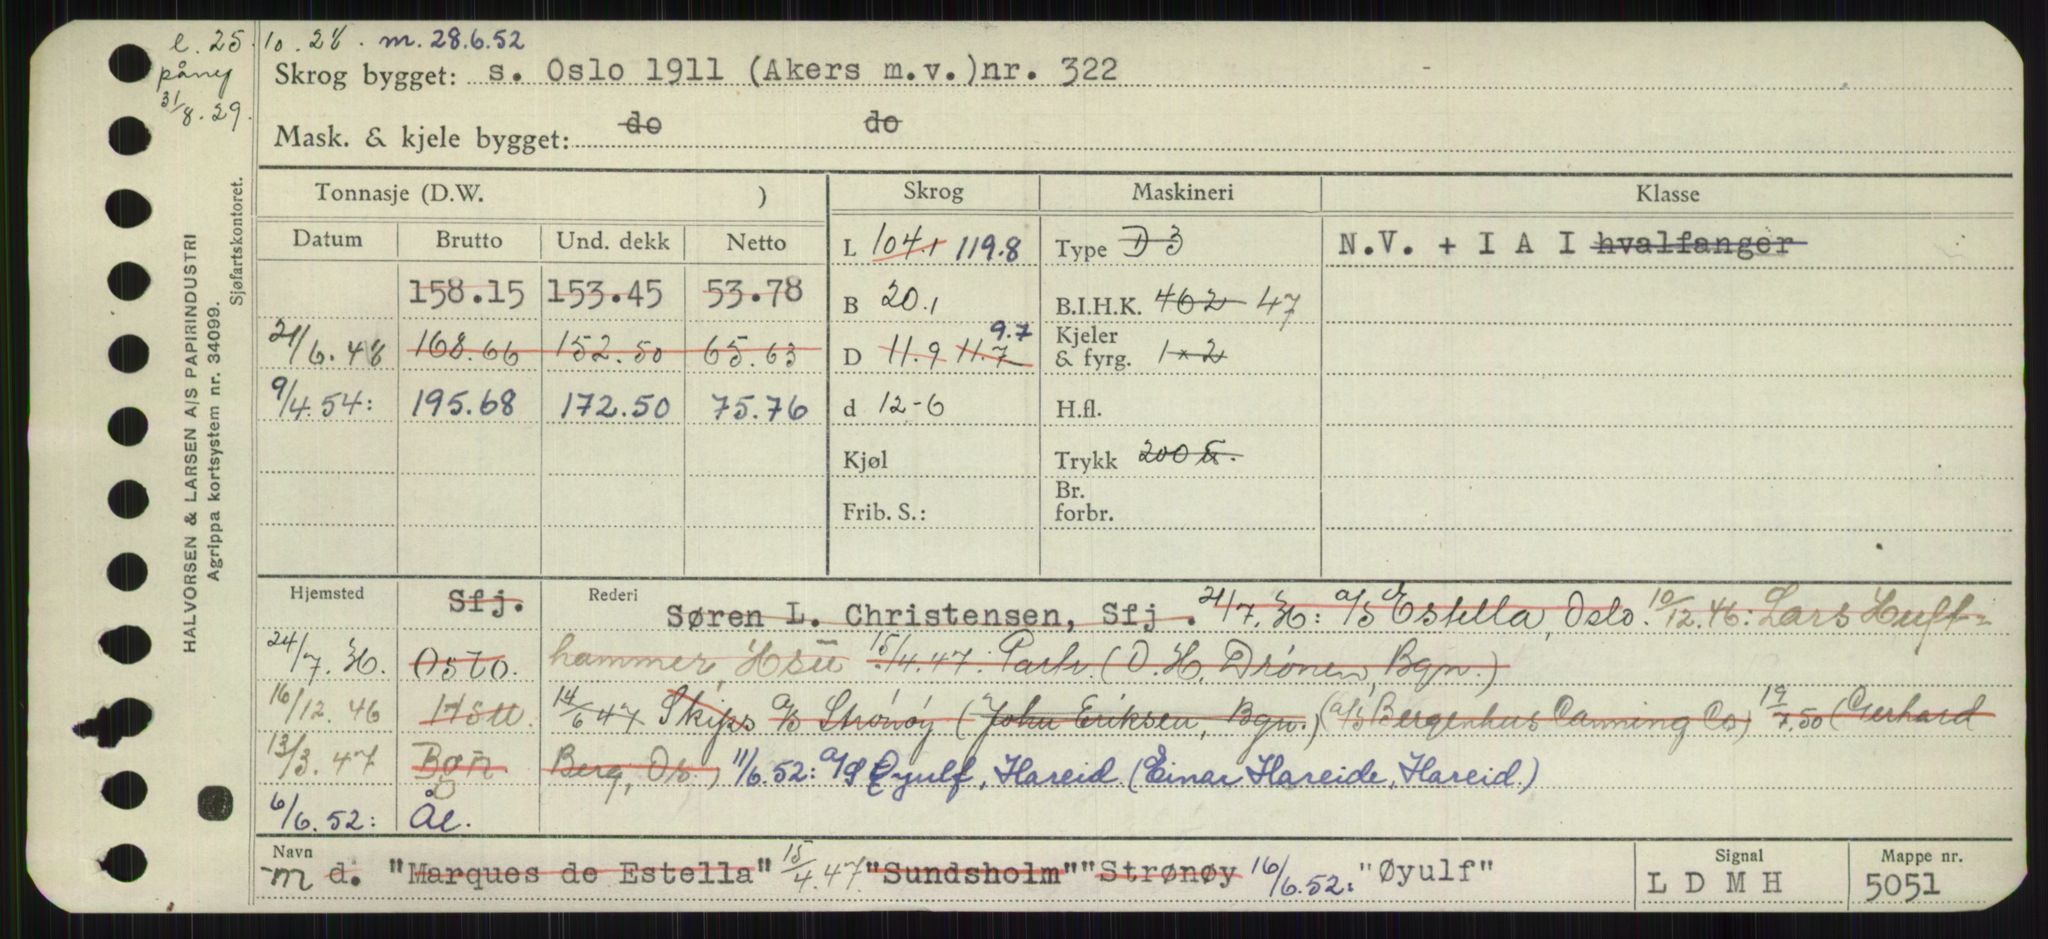 e. 25.10.28. m. 28.6.52
påny
31/8.29.
Skrog bygget: s. Oslo 1911 (Akers m.v.)nr. 322
Mask. & kjele bygget: do do
HALVORSEN & LARSEN A/S PAPIRINDUSTRI
Agrippa kortsystem nr. 34099.
Sjøfartskontoret.
Tonnasje (D.W. ) Skrog Maskineri Klasse
Datum Brutto Und. dekk Netto
L 104.1 119.8 Type D 3 N.V. + I A I hvalfanger
158.15 153.45 53.78 B 20.1 B.I.H.K. 462 47
21/6.48 168.66 152.50 65.63 D 11.9 11.7 9.7 Kjeler & fyrg. 1x2
9/4.54: 195.68 172.50 75.76 d 12-6 H.fl.
Kjøl Trykk 200
Frib. S.: Br. forbr.
Hjemsted Sfj. Rederi Søren L. Christensen, Sfj. 21/7. : a/s Estella, Oslo. 10/12.46: Lars Huft=
24/7. Oslo. hammer, Hsu 15/4.47: Partr. (O. H. Drönen, Bgn.)
16/12.46 Hsu. 14/6 47 Skips a/s Strønøy (John Eriksen, Bgn.) (a/s Bergenhus Canning Co) 19/7.50 (Gerhard
13/3.47 Bgn Berg, Os.) 11/6.52: a/s Øyulf, Hareid. (Einar Hareide, Hareid.)
6/6.52: Ål.
Navn m d. "Marques de Estella" 15/4.47 "Sundsholm" "Strønøy 16/6.52: "Øyulf"
Signal L D M H
Mappe nr. 5051